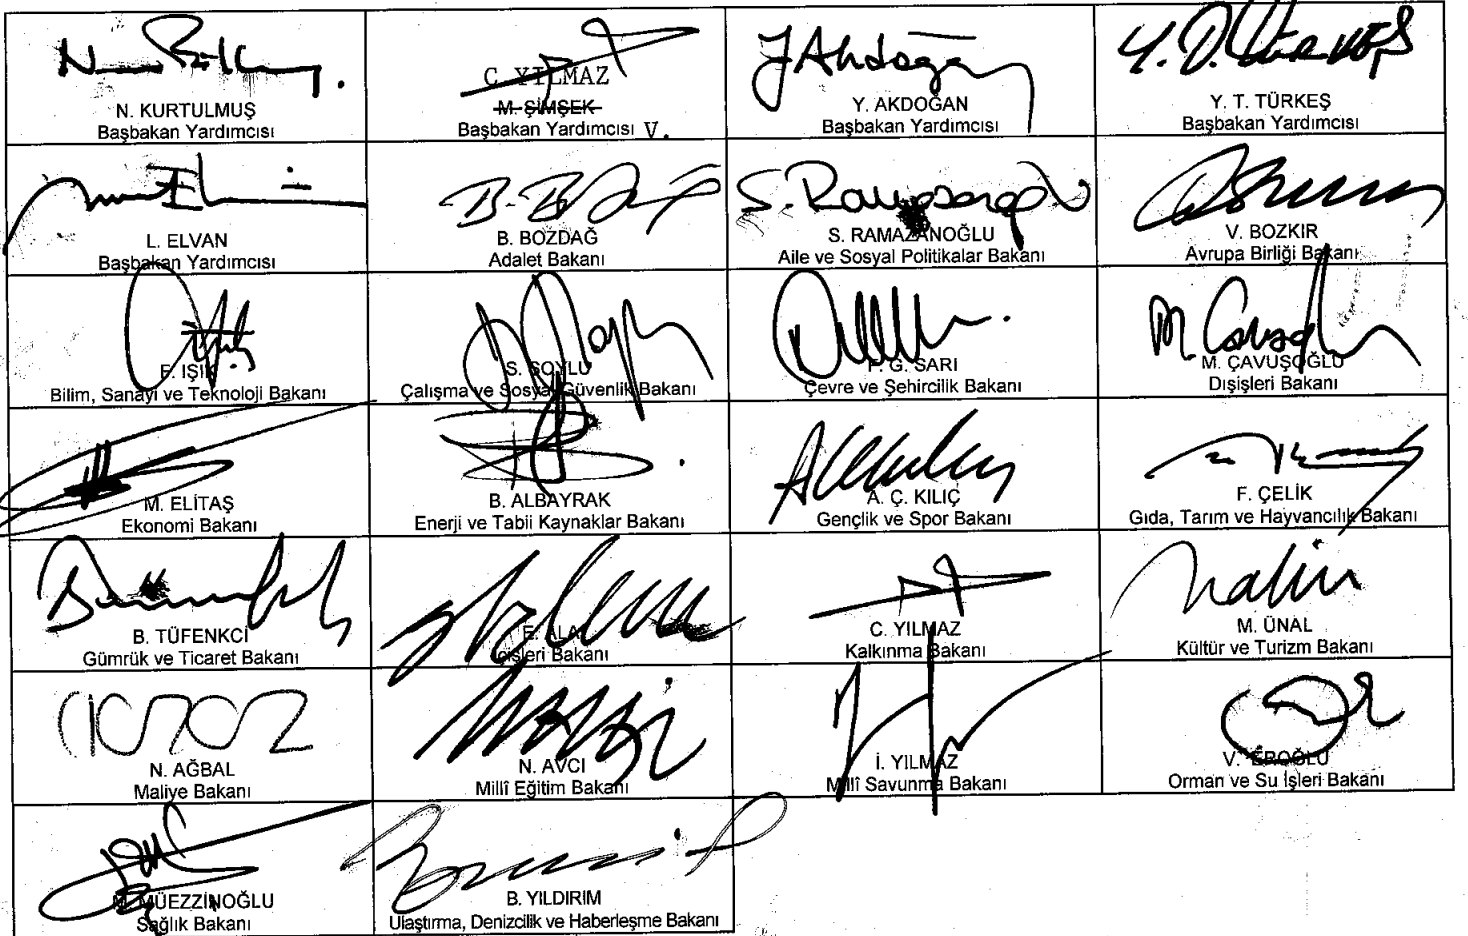 N. KURTULMUŞ
Başbakan Yardımcısı
C. YILMAZ
M. ŞİMŞEK
Başbakan Yardımcısı V.
Y. AKDOĞAN
Başbakan Yardımcısı
Y. T. TÜRKEŞ
Başbakan Yardımcısı
L. ELVAN
Başbakan Yardımcısı
B. BOZDAĞ
Adalet Bakanı
S. RAMAZANOĞLU
Aile ve Sosyal Politikalar Bakanı
V. BOZKIR
Avrupa Birliği Bakanı
F. IŞIK
Bilim, Sanayi ve Teknoloji Bakanı
S. SOYLU
Çalışma ve Sosyal Güvenlik Bakanı
F. G. SARI
Çevre ve Şehircilik Bakanı
M. ÇAVUŞOĞLU
Dışişleri Bakanı
M. ELİTAŞ
Ekonomi Bakanı
B. ALBAYRAK
Enerji ve Tabii Kaynaklar Bakanı
A. Ç. KILIÇ
Gençlik ve Spor Bakanı
F. ÇELİK
Gıda, Tarım ve Hayvancılık Bakanı
B. TÜFENKCİ
Gümrük ve Ticaret Bakanı
E. ALA
İçişleri Bakanı
C. YILMAZ
Kalkınma Bakanı
M. ÜNAL
Kültür ve Turizm Bakanı
N. AĞBAL
Maliye Bakanı
N. AVCI
Millî Eğitim Bakanı
İ. YILMAZ
Millî Savunma Bakanı
V. EROĞLU
Orman ve Su İşleri Bakanı
M. MÜEZZİNOĞLU
Sağlık Bakanı
B. YILDIRIM
Ulaştırma, Denizcilik ve Haberleşme Bakanı